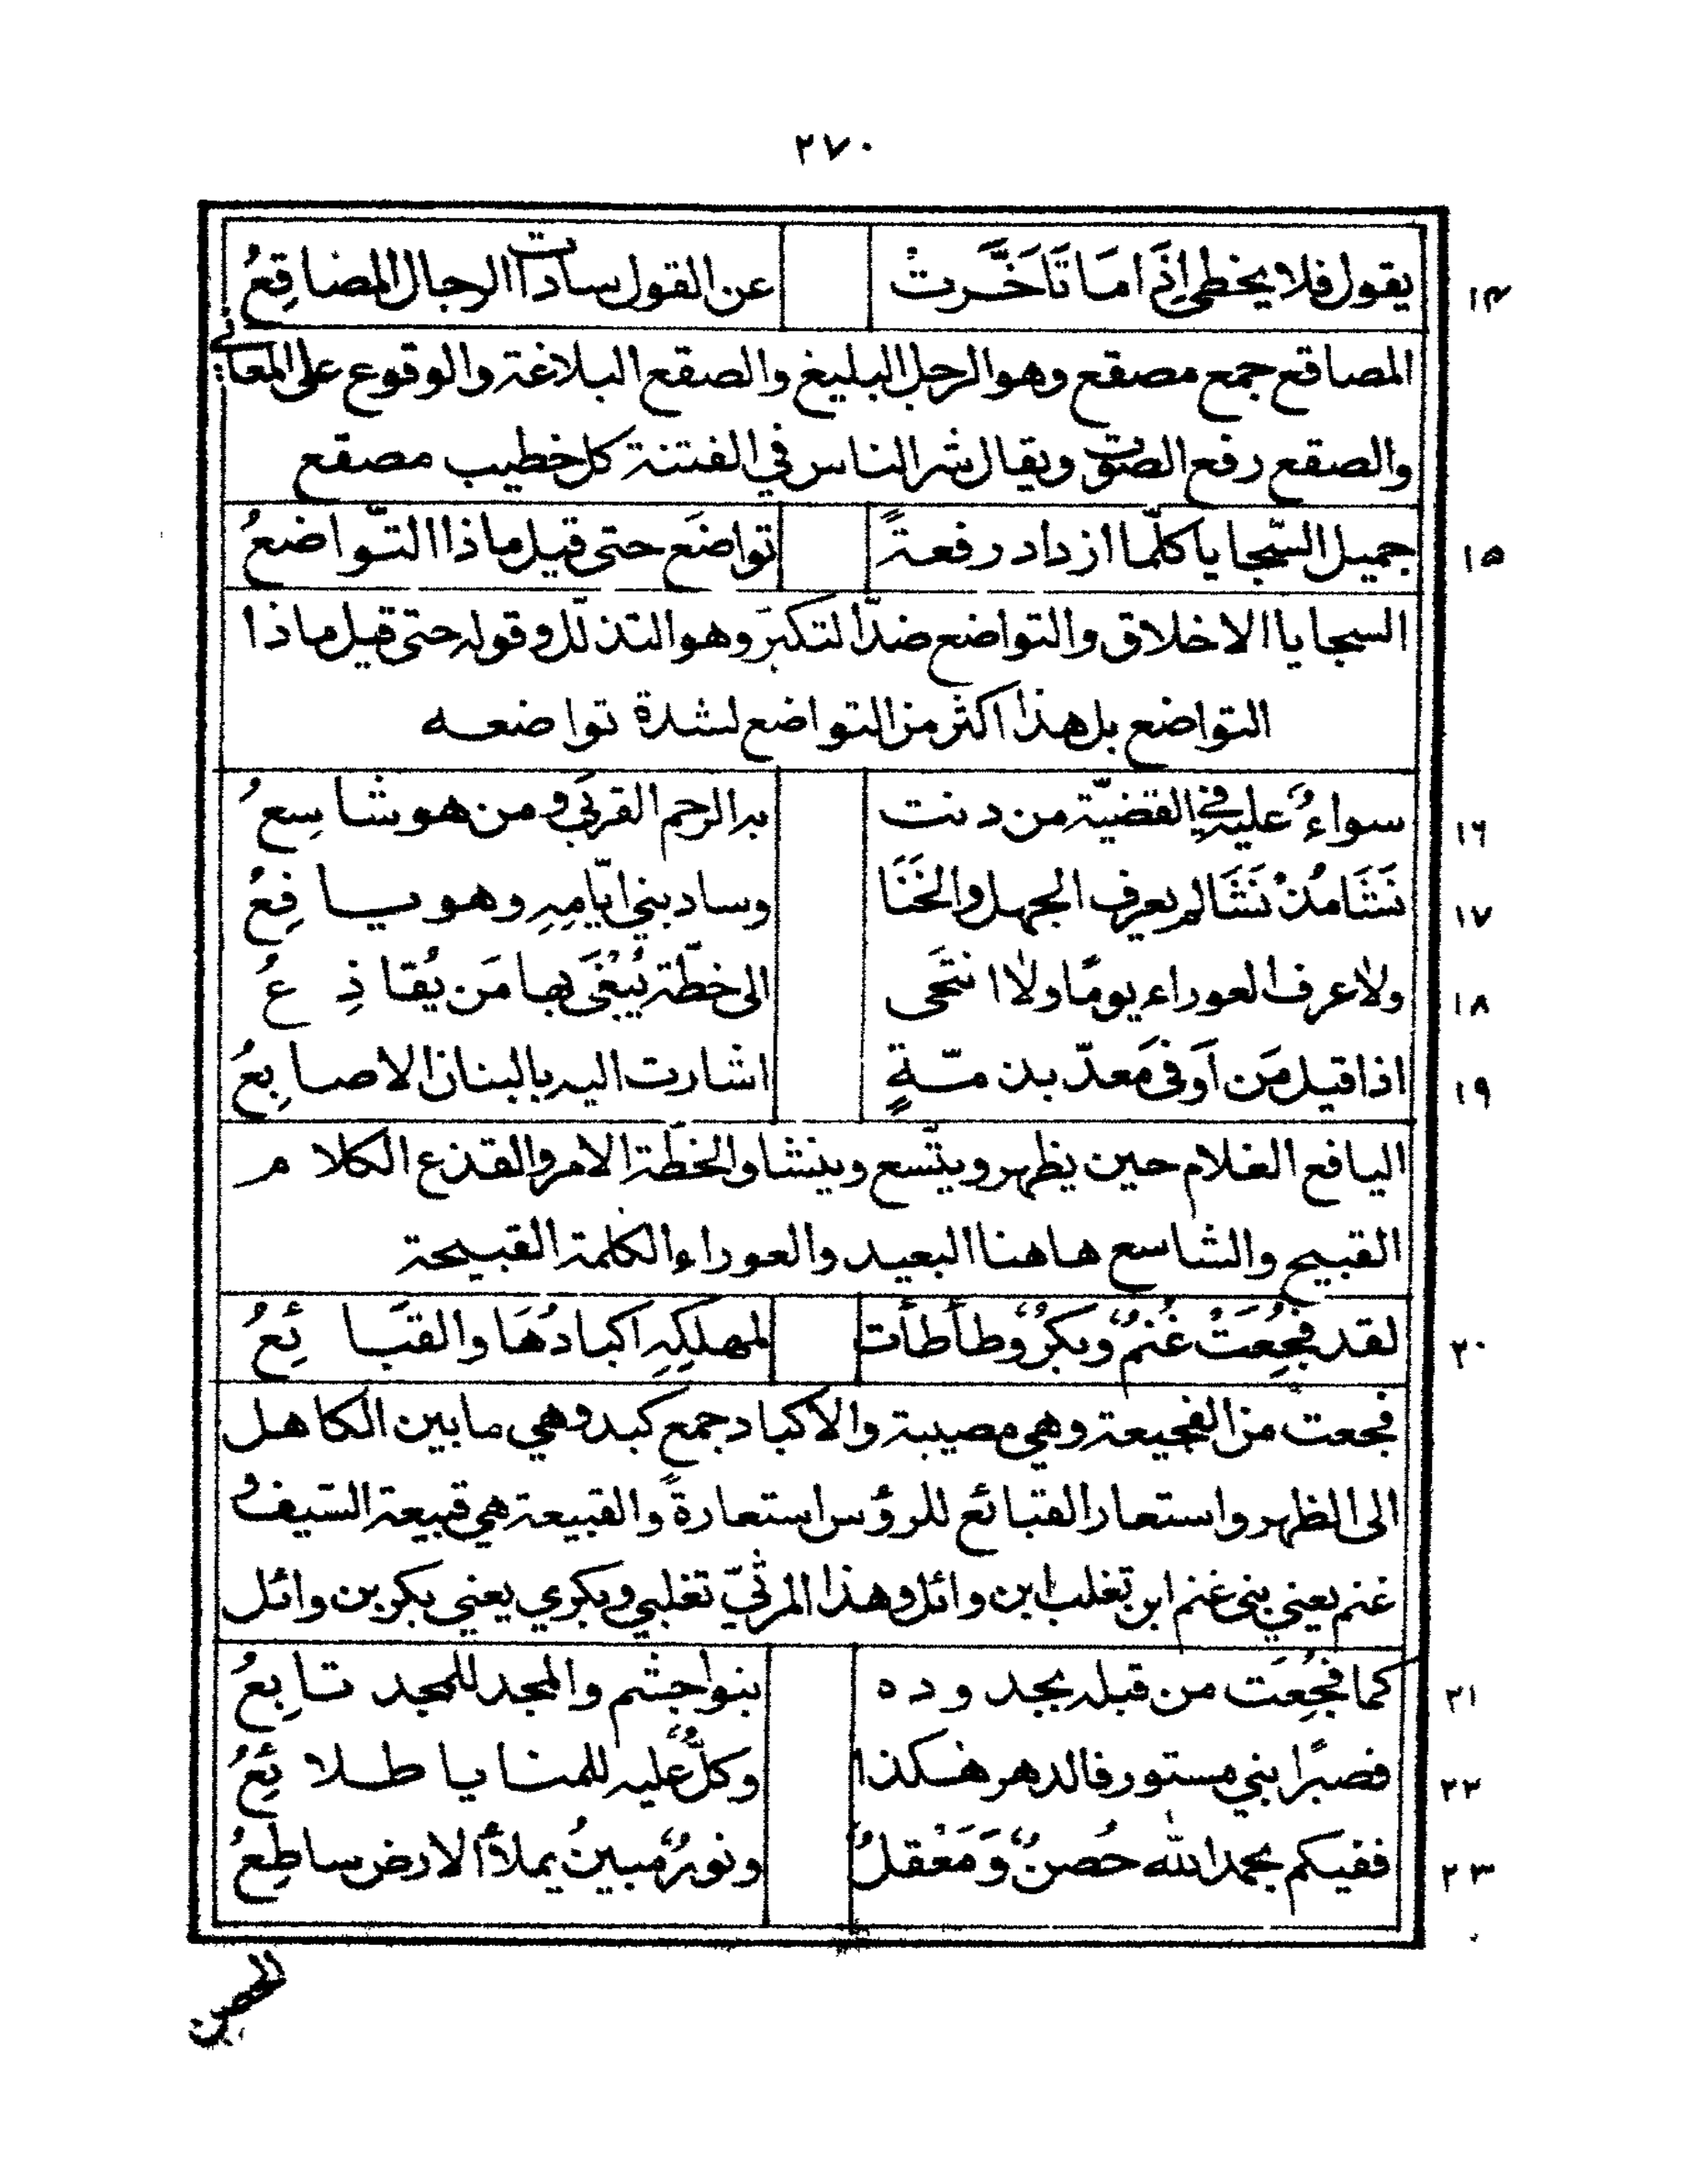 ٢٧٠
١٤ يقول فلا يخطي إِذَا مَا تَأَخَّرتْ عن القول سادات الرجال المضاقِعُ
المصاقع جمع مصقع وهو الرجل البليغ والصقع البلاغة والوقوع على المعاني
والصقع رفع الصوت ويقال شر الناس في الفتنة كل خطيب مصقع
١٥ جميل السّجايا كلّما ازداد رفعةً تواضَع حتى قيل ماذا التّواضعُ
السجايا الاخلاق والتواضع ضدّ التكبّر وهو التذلّل وقوله حتى قيل ماذا
التواضع بل هذا اكثر من التواضع لشدة تواضعه
١٦ سواءٌ عليه في القضيّة من دنت به الرحم القربَى ومن هو شاسِعُ
١٧ نَشَا مُذْ نَشَا لم يعرف الجهل والخَنَا وساد بني ايّامِهِ وهو يافِعُ
١٨ ولا عرف العوراء يومًا ولا انتَحَى الى خطّة يُبْغَى بها مَن يُقاذِعُ
١٩ اذا قيل مَن أَوفَى مَعدّ بذمّةٍ اشارت اليه بالبنان الاصابِعُ
اليافع الغلام حين يظهر ويتّسع وينشا والخطّة الامر والقذع الكلام
القبيح والشاسع هاهنا البعيد والعوراء الكلمة القبيحة
٢٠ لقد فُجِعَتْ غُنمٌ وبكرٌ وطأطأت لمهلكِهِ اكبادُهَا والقبَائِعُ
فجعت من الفجيعة وهي مصيبة والاكباد جمع كبد وهي ما بين الكاهل
الى الظهر واستعار القبائع للرؤس استعارةً والقبيعة هي قبيعة السّيف و
غنم يعني بني غنم ابن تغلب ابن وائل وهذا المرثيّ تغلبي وبكري يعني بكر بن وائل
٢١ كما فُجِعَت من قبله بجدوده بنوا جشم والمجد للمجد تابِعُ
٢٢ فصبرًا بني مستور فالدهر هكذا وكلٌّ عليه للمنايا طلائِعُ
٢٣ ففيكم بحمد الله حُصنٌ وَمَعْقلٌ ونورٌ مبينُ يملأ الارض ساطِعُ
الحصن